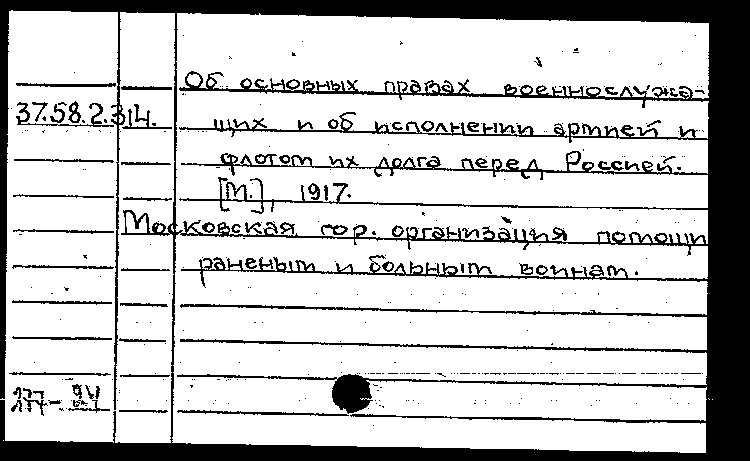 Об основных правах военнослужа-
37.58.2.314. щих и об исполнении армией и
флотом их долга перед Россией.
[М.], 1917.
Московская гор. организация помощи
раненым и больным воинам.
177-94